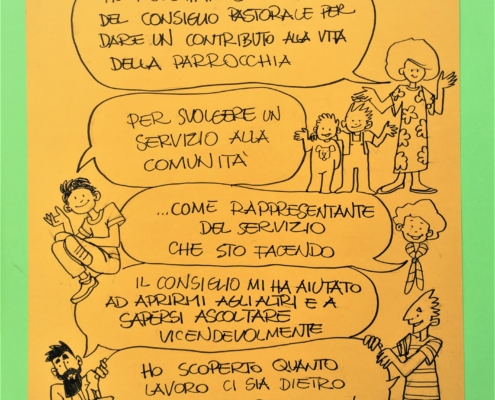 DEL CONSIGLIO PASTORALE PER
DARE UN CONTRIBUTO ALLA VITA
DELLA PARROCCHIA
PER SVOLGERE UN
SERVIZIO ALLA
COMUNITÀ
...COME RAPPRESENTANTE
DEL SERVIZIO
CHE STO FACENDO
IL CONSIGLIO MI HA AIUTATO
AD APRIRMI AGLI ALTRI E A
SAPERSI ASCOLTARE
VICENDEVOLMENTE
HO SCOPERTO QUANTO
LAVORO CI SIA DIETRO